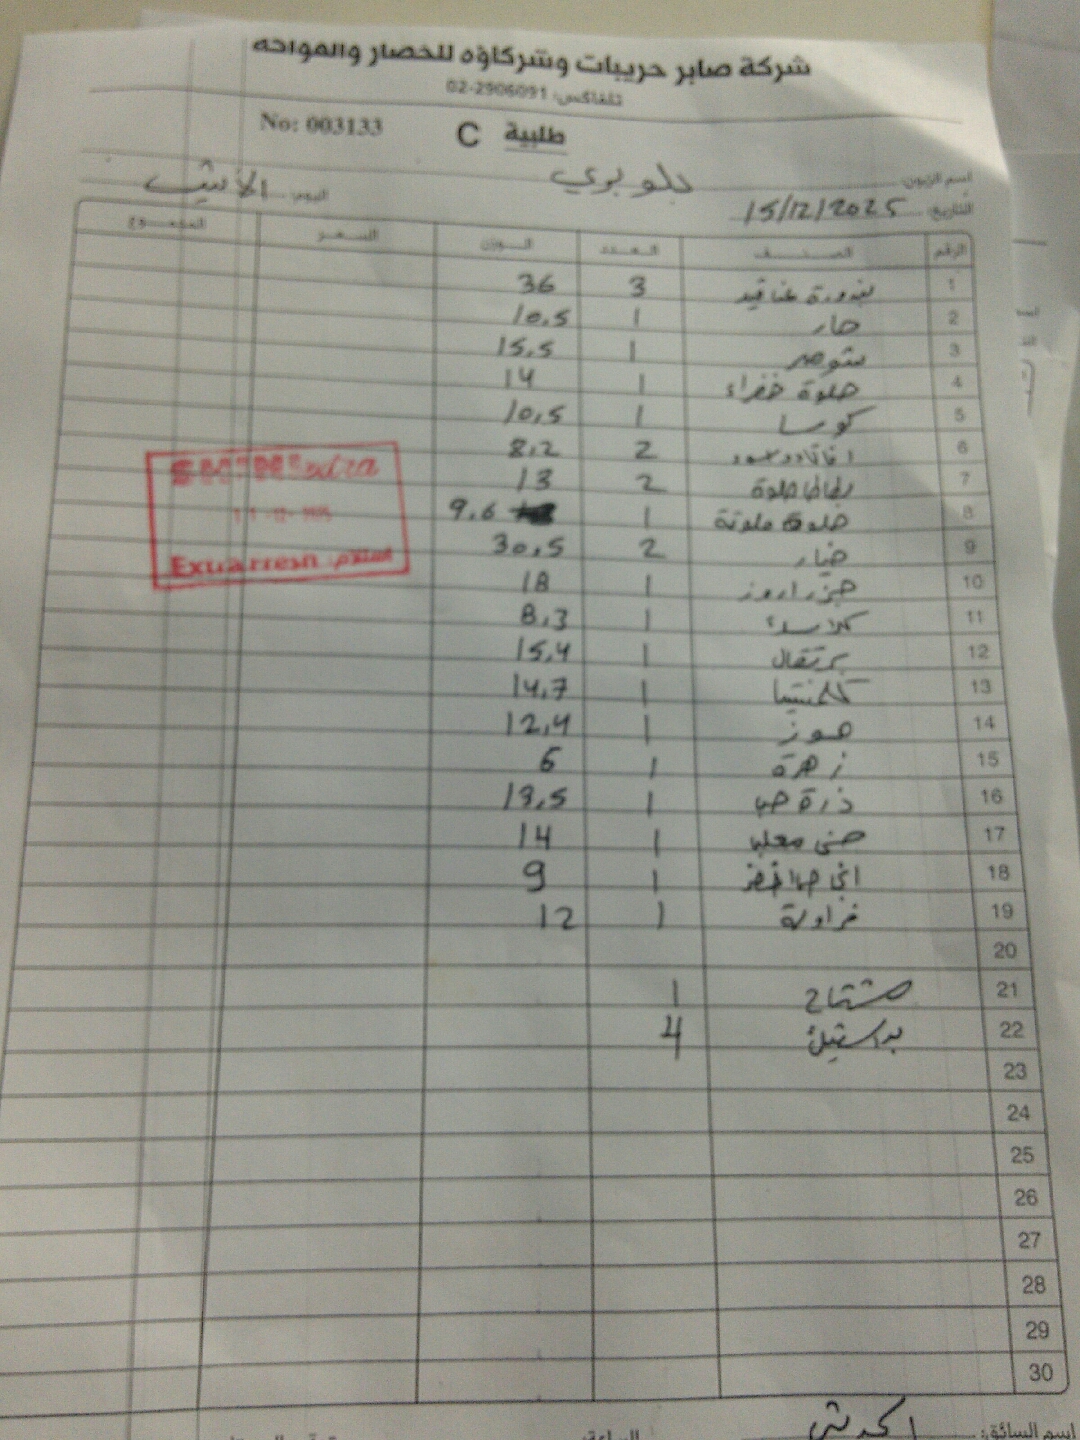 شركة صابر حريبات وشركاؤه للخضار والفواكه
تلفاكس: 02-2906091
No: 003133 طلبية C
اسم الزبون: بلوبري اليوم: الاثنين
التاريخ: 15/12/2025
الرقم الصنف العدد الوزن السعر المجموع
1 بندورة عناقيد 3 36
2 حار 1 10.5
3 1 15.5
4 حلوة خضراء 1 14
5 كوسا 1 10.5
6 2 8.2
7 بطاطا حلوة 2 13
8 حلوة ملونة 1 9.6
9 خيار 2 30.5
10 جزر 1 18
11 1 8.3
12 برتقال 1 15.4
13 كلمنتينا 1 14.7
14 موز 1 12.4
15 زهرة 1 6
16 ذرة حب 1 13.5
17 1 14
18 1 9
19 فراولة 1 12
20
21 1
22 4
23
24
25
26
27
28
29
30
اسم السائق: الساعة: